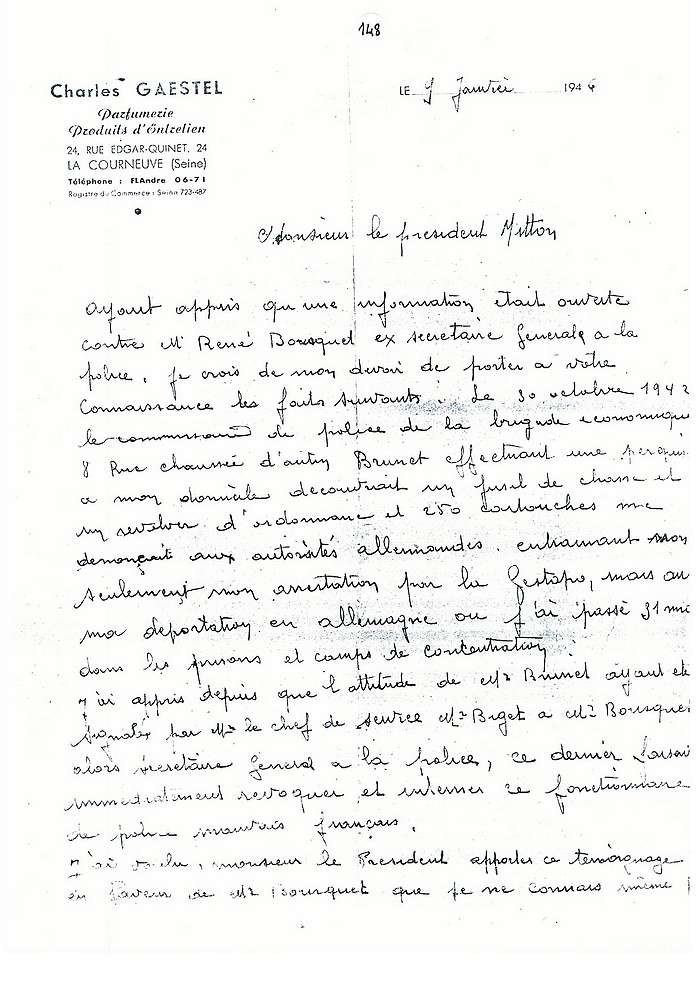 148
Charles GAESTEL
Parfumerie
Produits d'Entretien
24, RUE EDGAR-QUINET, 24
LA COURNEUVE (Seine)
Téléphone : FLAndre 06-71
Registre du Commerce : Seine 723-487
LE 9 Janvier 1946
Monsieur le president Mitton
Ayant appris qu une information etait ouverte
contre Mr René Bousquet ex secretaire Generale a la
police, je crois de mon devoir de porter a votre
connaissance les faits suivants : Le 30 octobre 1942
le commissaire de police de la brigade economique
8 Rue chaussée d'antin Brunet effectuant une perquis
a mon domicile decouvrait un fusil de chasse et
un revolver d'ordonnance et 250 cartouches me
denonçait aux autorités allemandes. entrainant non
seulement mon arrestation par la Gestapo, mais au
ma deportation en allemagne ou j'ai passé 31 moi
dans les prisons et camps de concentration.
J'ai appris depuis que l'attitude de Mr Brunet ayant eté
signalée par Mr le chef de service Mr Biget a Mr Bousquet
alors secretaire General a la police, ce dernier faisait
immediatement revoquer et interner ce fonctionnaire
de police mauvais français.
J'ai voulu, monsieur le President apporter ce temoignage
en faveur de Mr Bousquet que je ne connais même p